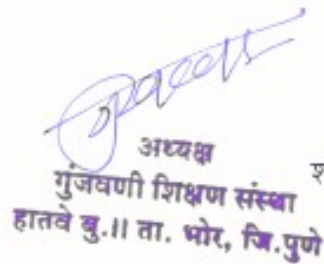 अध्यक्ष
गुंजवणी शिक्षण संस्था
हातवे बु.।। ता. भोर, जि.पुणे